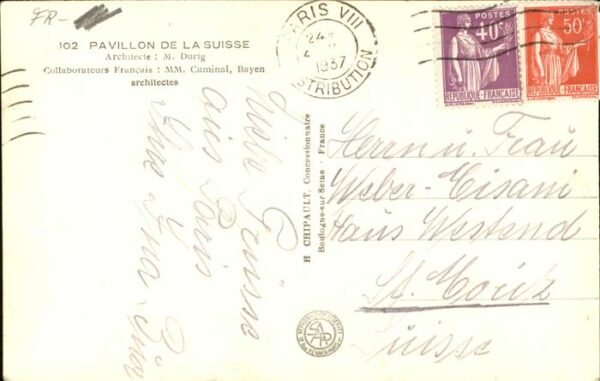 FR-
102 PAVILLON DE LA SUISSE
Architecte : M. Durig
Collaborateurs Français : MM. Cuminal, Bayen
architectes
PARIS VIII
24
4
1937
DISTRIBUTION
POSTES
40c
REPUBLIQUE-FRANÇAISE
POSTES
50c
REPUBLIQUE-FRANÇAISE
Grüsse
aus Paris
Ihre
H CHIPAULT, Concessionnaire
Boulogne-sur-Seine - France
Herrn u. Frau
Weber-Cisani
Haus Westend
St. Moritz
Suisse